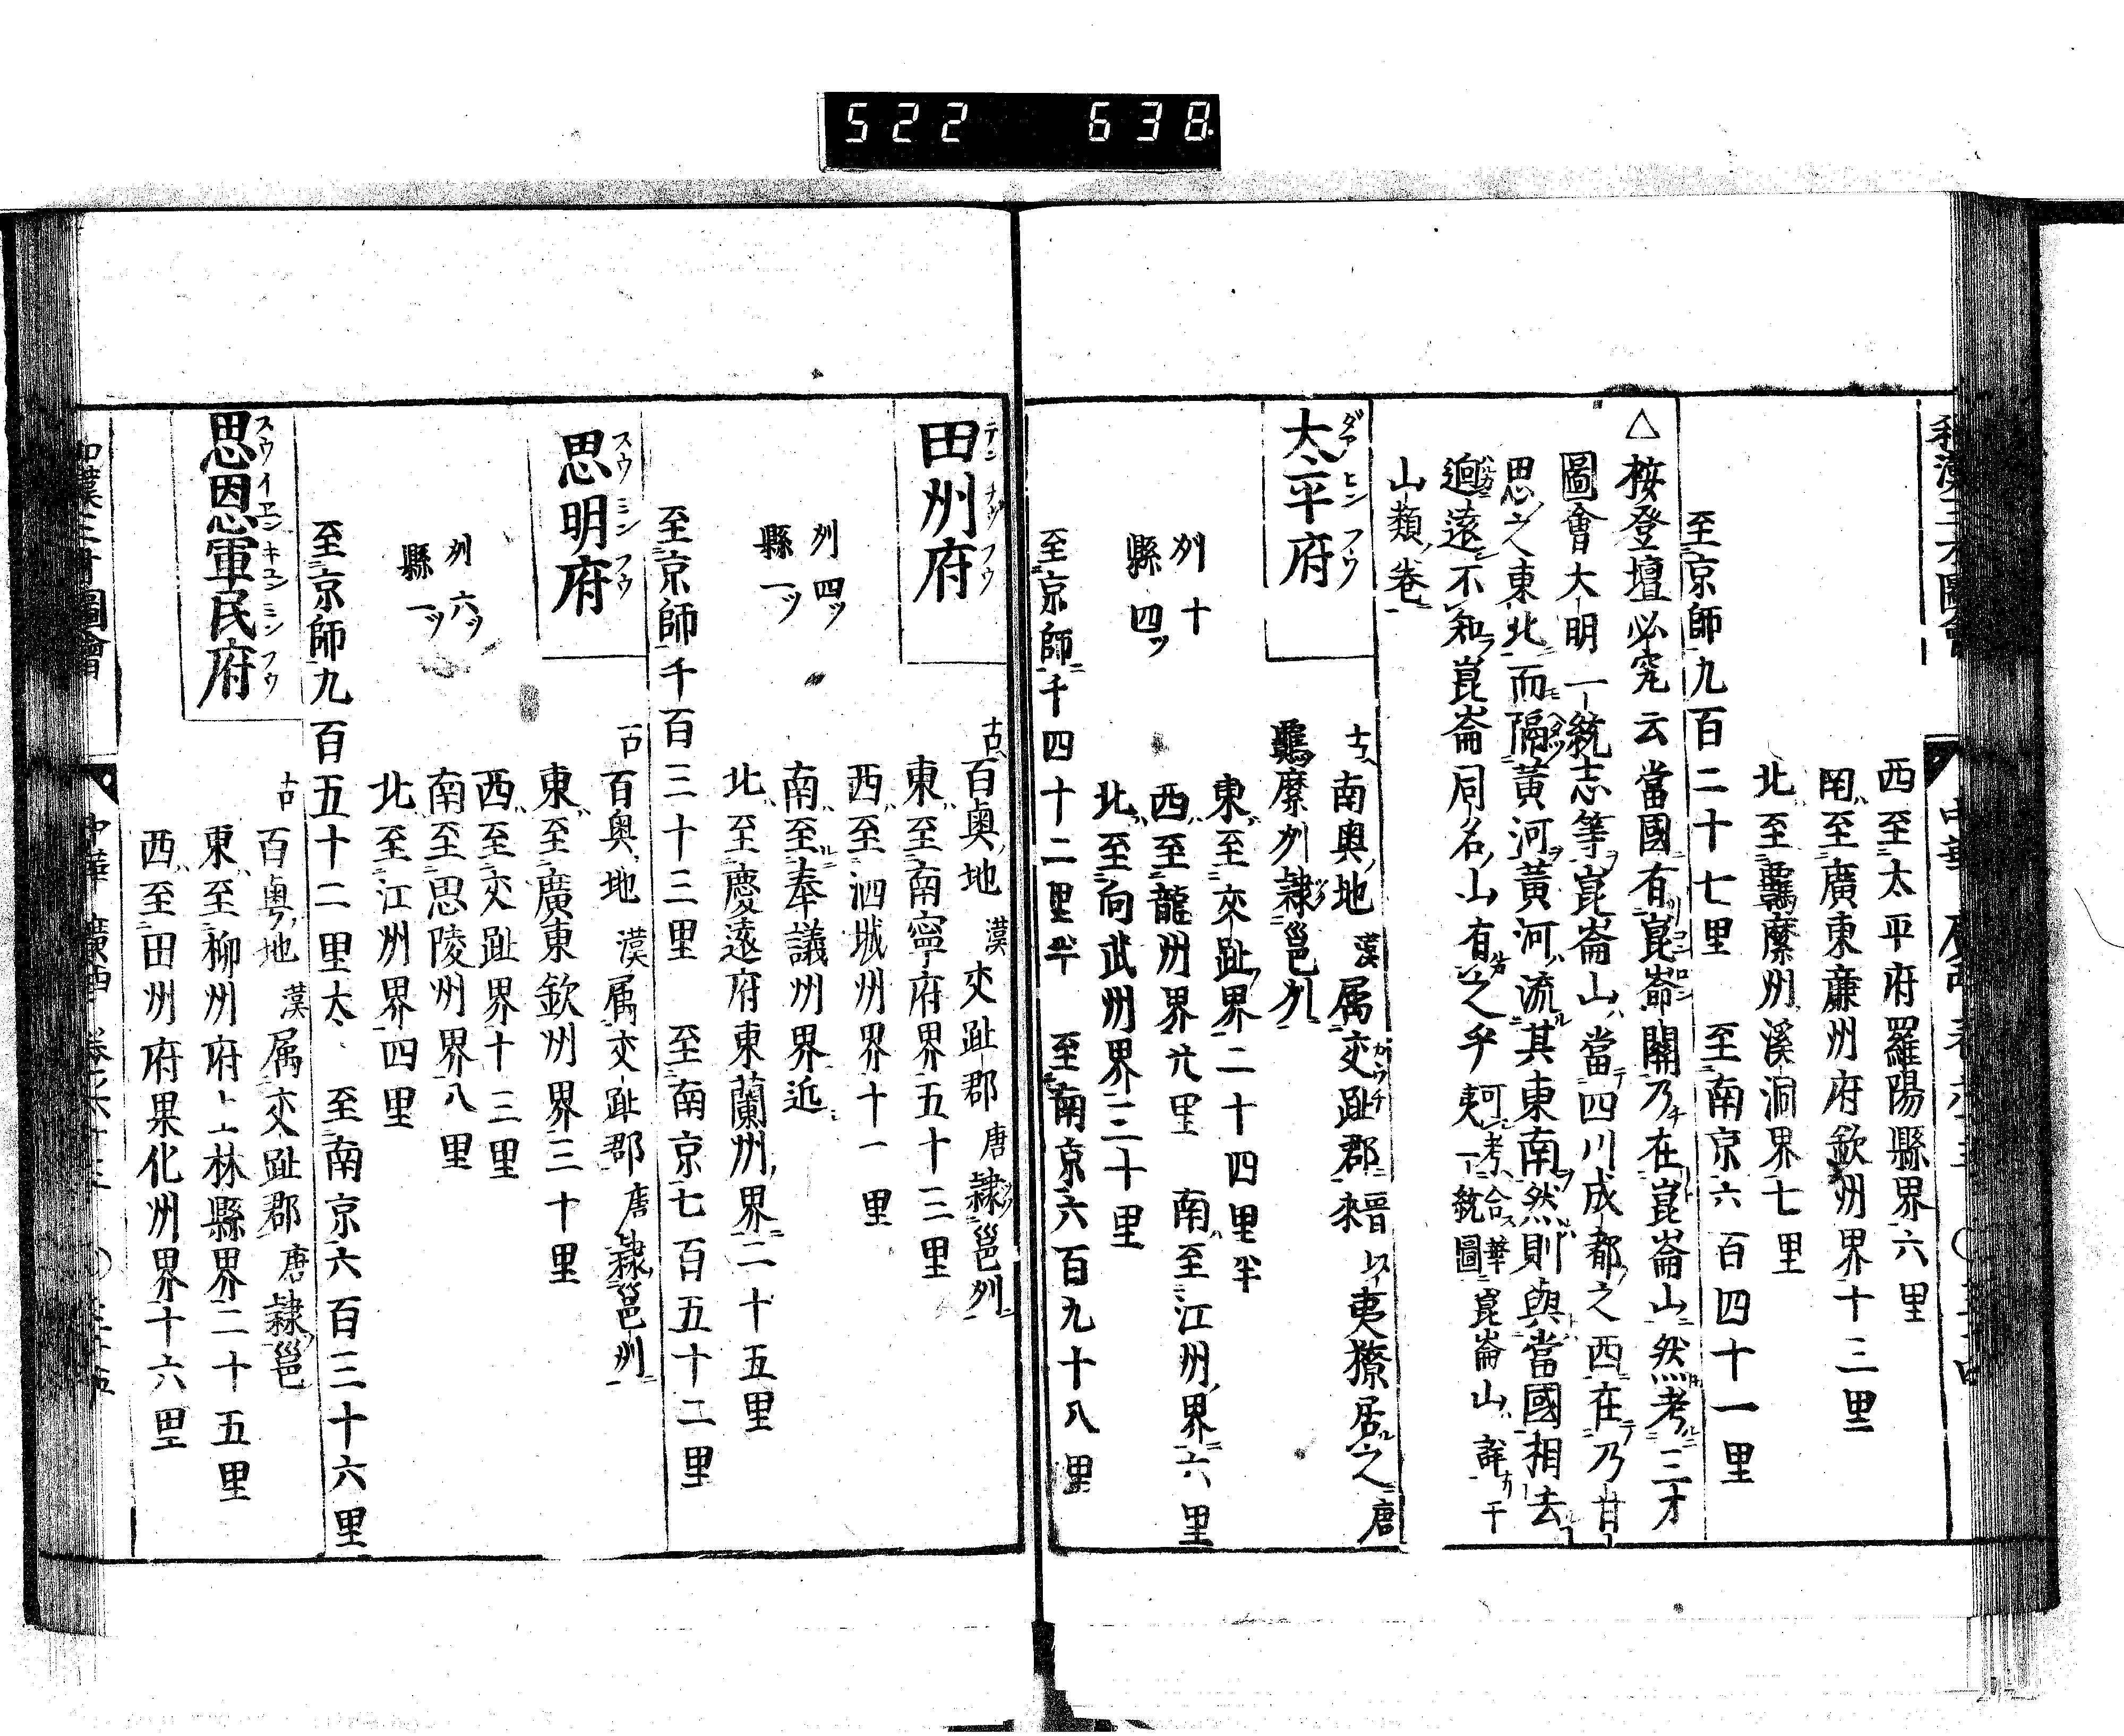 522 638
和漢三才圖會
西至太平府羅陽縣界六里
南至廣東廉州府欽州界十三里
北至羈縻州溪洞界七里
至京師九百二十七里 至南京六百四十一里
△桉登壇必究云當國有崑崙關乃在崑崙山然考三才
圖會大明一統志等崑崙山當四川成都之西在乃甘
思之東北而隔黃河黃河流其東南然則與當國相去
逈遠不知崑崙同名山有之乎
山類卷
太平府 ダアヒンフウ
古南奥地漢属交趾郡晋來以夷獠居之唐
羈縻州隷邕州
州十
縣四ツ
東至交趾界二十四里半
西至龍州界六里 南至江州界六里
北至向武州界三十里
至京師千四十二里半 至南京六百九十八里
田州府
古百奥地漢交趾郡唐隷邕州
東至南寧府界五十三里
西至泗城州界十一里
州四ツ
縣一ツ
南至奉議州界近
北至慶遠府東蘭州界二十五里
至京師千百三十三里 至南京七百五十二里
思明府 スウミンフウ
古百奥地漢属交趾郡唐隷邕州
東至廣東欽州界三十里
西至交趾界十三里
州六ツ
縣一ツ
南至思陵州界八里
北至江州界四里
至京師九百五十二里大 至南京六百三十六里
思恩軍民府 スウイエンキユンミンフウ
古百粤地漢属交趾郡唐隷邕
東至柳州府上林縣界二十五里
西至田州府果化州界十六里